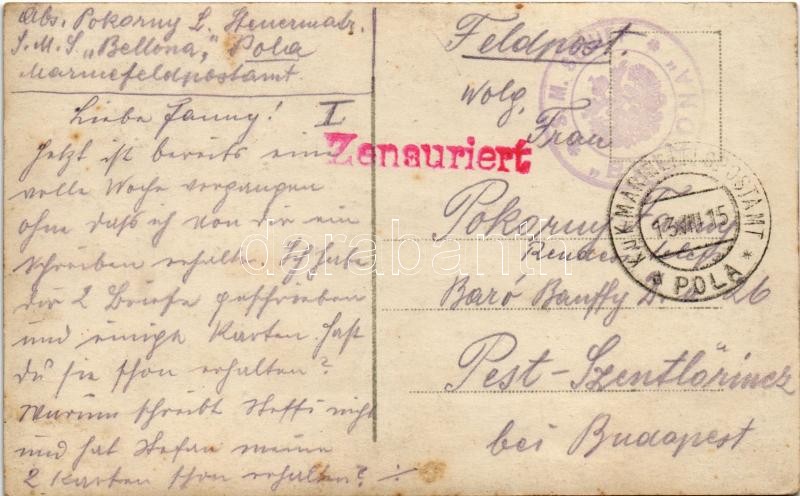 Abs. Pokorny L. Steuermatr.
S.M.S. „Bellona," Pola
Marinefeldpostamt
Liebe Fanny!
Jetzt ist bereits eine
volle Woche vergangen
ohne dass ich von dir ein
schreiben erhalte. Ich habe
dir 2 Briefe geschrieben
und einige Karten hast
du sie schon erhalten?
Warum schreibt Steffi nicht
und hat Stefan meine
2 Karten schon erhalten?
I
Zensuriert
Feldpost.
Wolg.
Frau
Pokorny Fanny
Baró Banffy 26
Pest-Szentlőrincz
bei Budapest
S.M. SCHIFF "BELLONA"
K.u.K. MARINEFELDPOSTAMT
13.VIII.15
* POLA *
darabanth